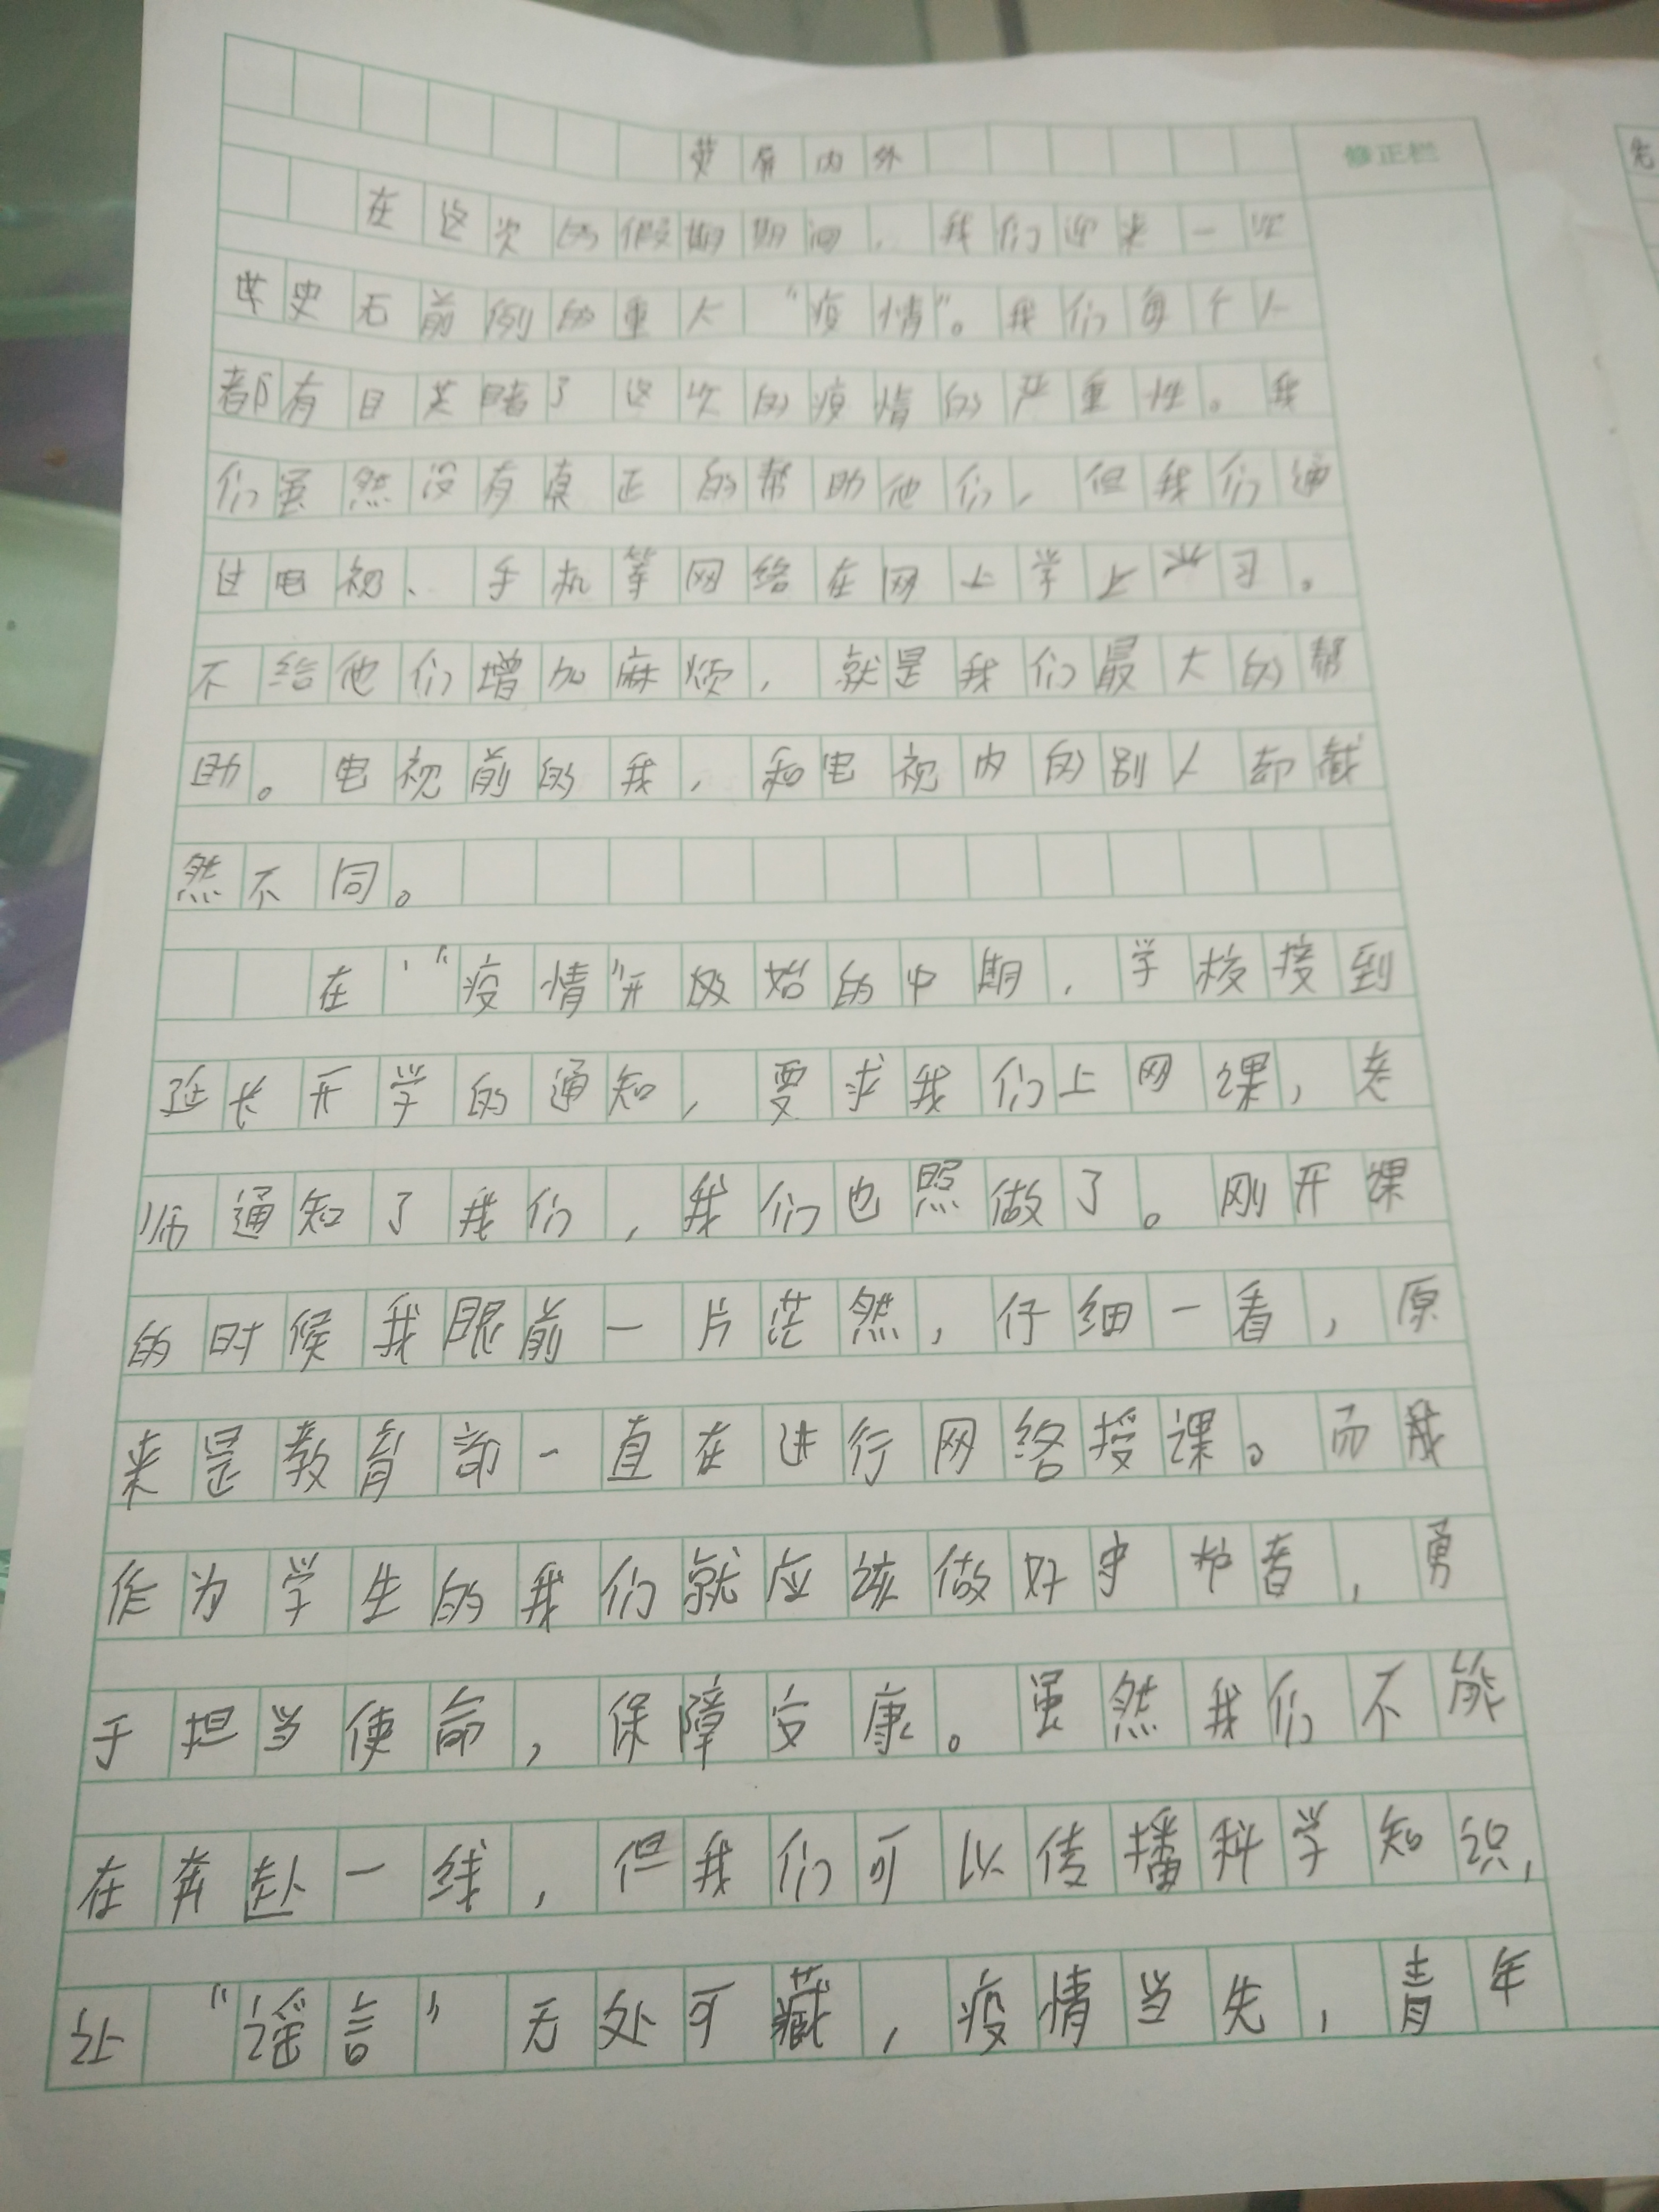 荧屏内外
修正栏
先
在这次的假期期间，我们迎来一次
史无前例的重大“疫情”。我们每个人
都有目共睹了这次的疫情的严重性。我
们虽然没有真正的帮助他们，但我们通
过电视、手机等网络在网上学上学习。
不给他们增加麻烦，就是我们最大的帮
助。电视前的我，和电视内的别人却截
然不同。
在“疫情”开始的中期，学校接到
延长开学的通知，要求我们上网课，老
师通知了我们，我们也照做了。刚开课
的时候我眼前一片茫然，仔细一看，原
来是教育部一直在进行网络授课。而我
作为学生的我们就应该做好守护者，勇
于担当使命，保障安康。虽然我们不能
在奔赴一线，但我们可以传播科学知识，
让“谣言”无处可藏，疫情当先，青年